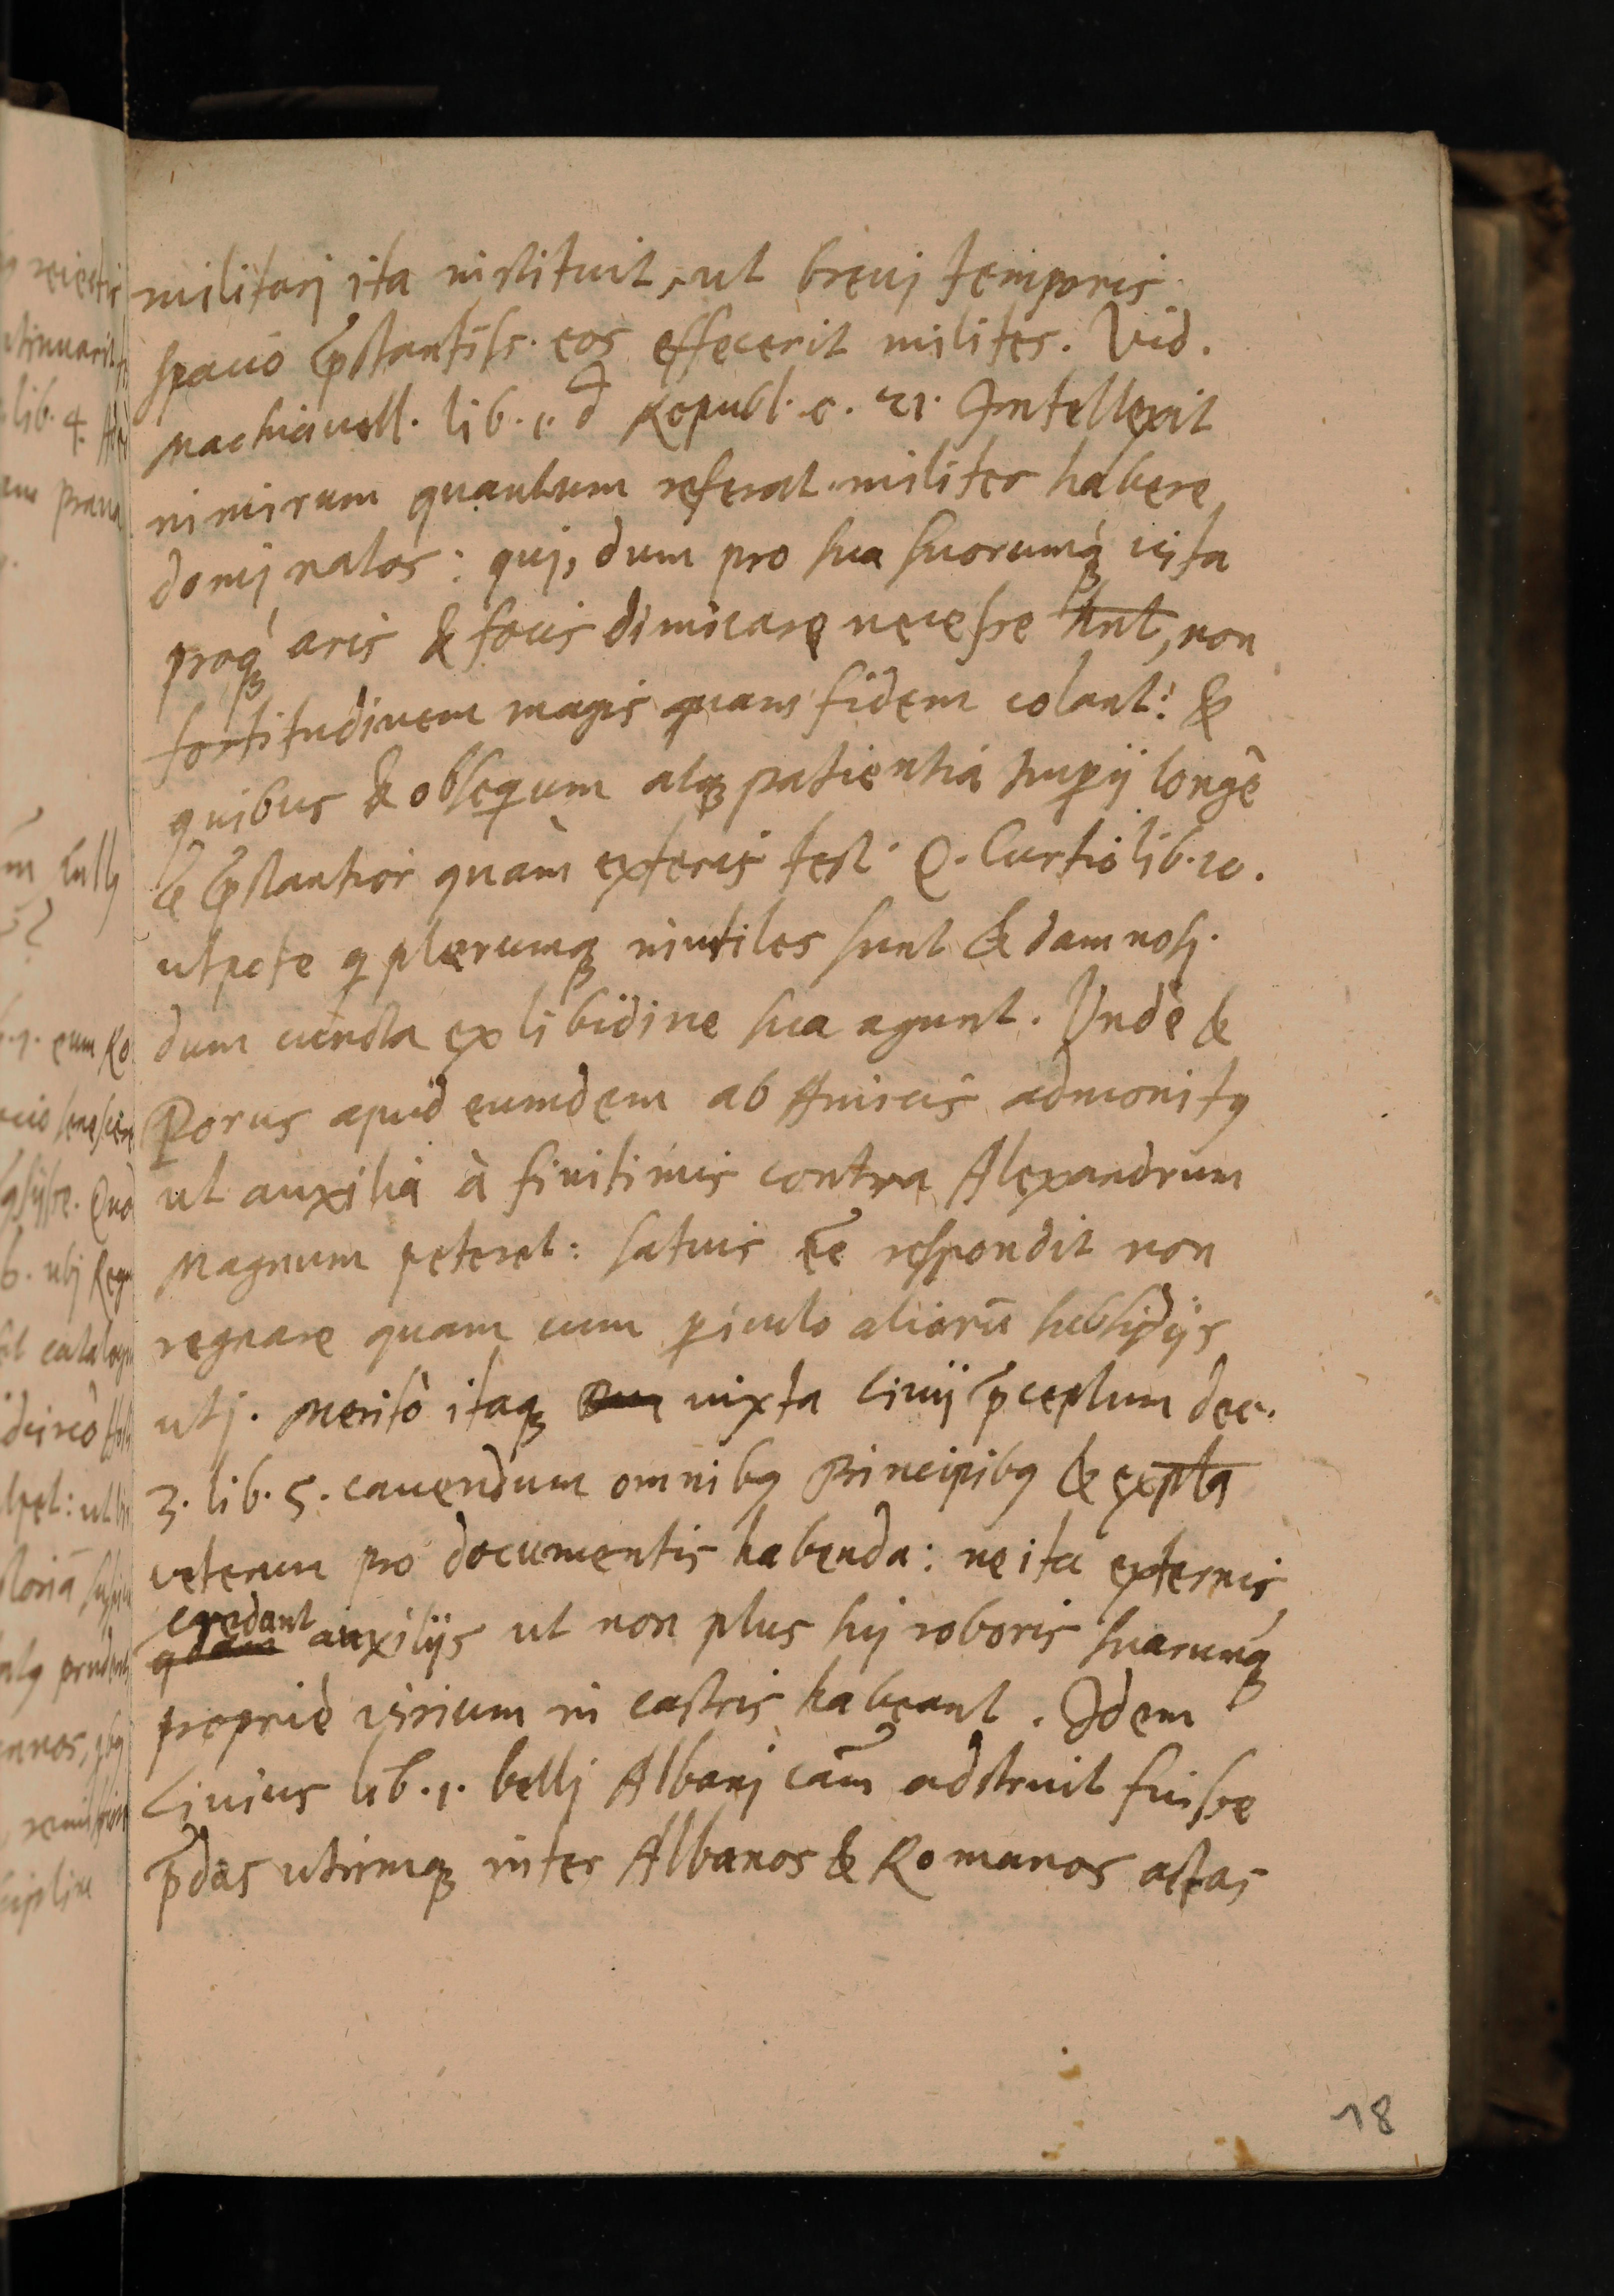 militarj ita instituit, ut breuj temporis
spacio p̃stantiss. eos effecerit milites. Vid.
Machiauell. lib. 1. d Republ. c. 21. Intellexit
nimirum quantum referat milites habere
domj natos: quj, dum pro sua suorumq́ꝫ vita
proq́ꝫ aris & focis dimicare necesse hnt, non
fortitudinem magis quam fidem colant: &
quibus & obsequium atqꝫ patientia Imꝑij longè
ẽ p̃stantior quàm exteris test. Q. Curtio lib. 10.
utpote q plerumqꝫ inutiles sunt & damnosj.
dum cuncta ex libidine sua agunt. Vndè &
Porus apud eumdem ab Amicis admonitꝰ
ut auxilia à finitimis contra Alexandrum
Magnum peteret: satius ẽe respondit non
regnare quam cum ꝑiculo aliorũ subsidijs
utj. Meritò itaqꝫ iuxta Liuij p̃ceptum dec.
3. lib. 5. cauendum omnibꝰ Principibꝰ & expla
veterum pro documentis habenda: ne ita externis
credant
qdam auxilijs ut non plus suj roboris suarumq́ꝫ
propriè virium in castris habeant. Idem
Liuius lib. 1. bellj Albanj cam̃ adstruit fuisse
p̃das utrimqꝫ inter Albanos & Romanos actas
18